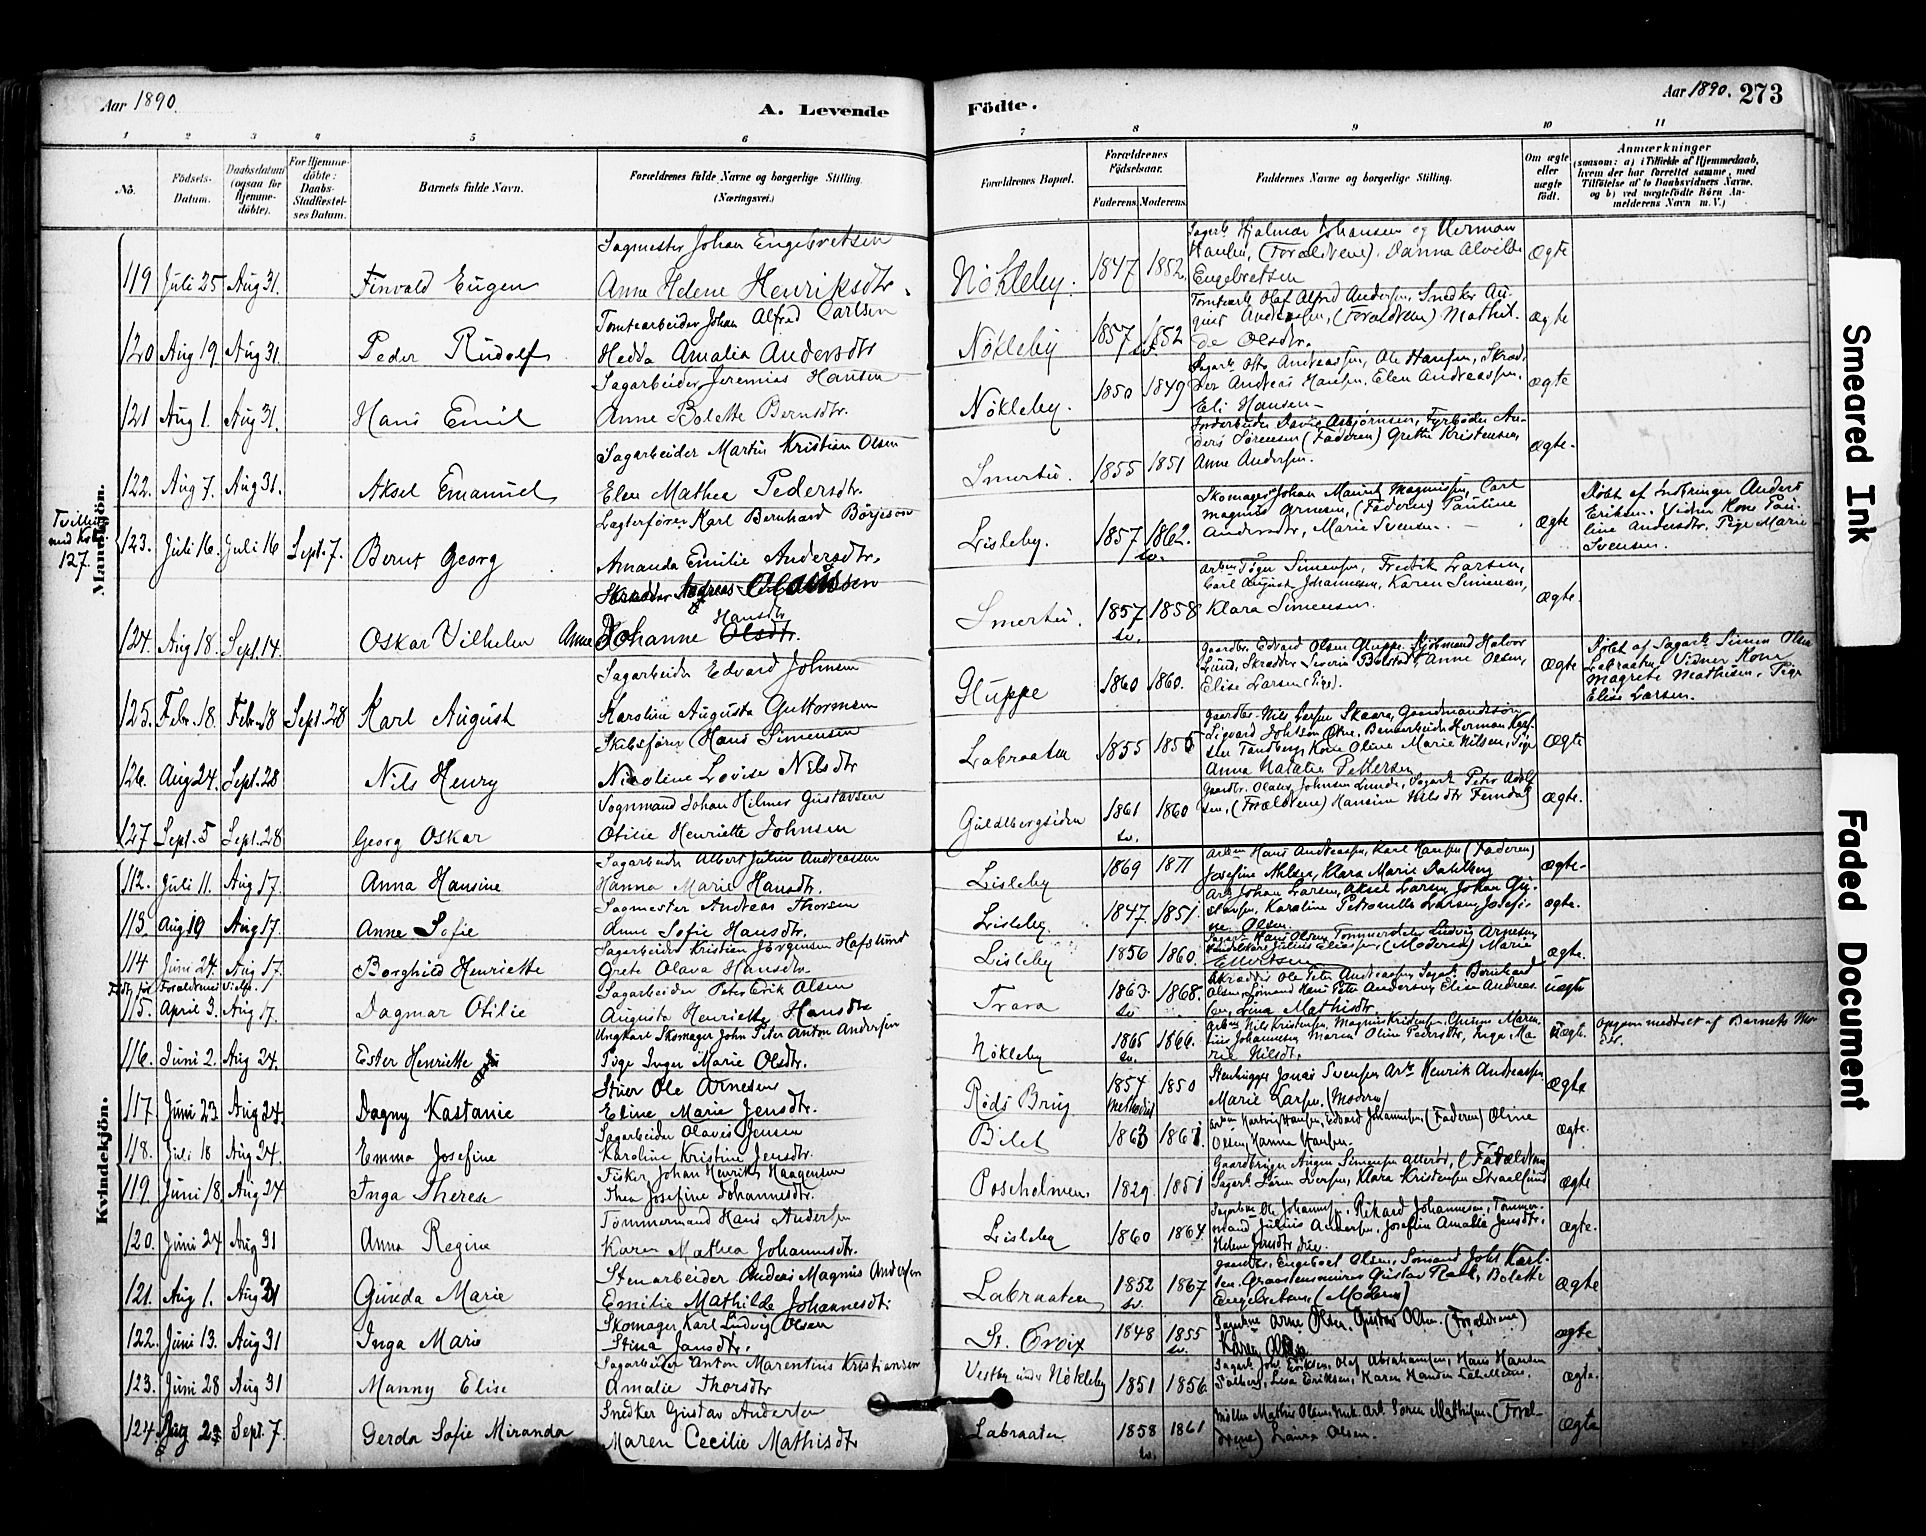 Aar 1890.
A. Levende
Födte.
Aar 1890. 273
1 2 3 4 5 6 7 8 9 10 11
No.
Födsels-Datum.
Daabsdatum (ogsaa for Hjemme-döbte).
For Hjemme-döbte: Daabs-Stadfæstel-ses Datum.
Barnets fulde Navn.
Forældrenes fulde Navne og borgerlige Stilling. (Næringsvei.)
Forældrenes Bopæl.
Forældrenes Födselsaar.
Faderens. Moderens.
Faddernes Navne og borgerlige Stilling.
Om ægte eller uægte født.
Anmærkninger
(saasom: a) i Tilfælde af Hjemmedaab, hvem der har forrettet samme, med Tilföielse af to Daabsvidners Navne, og b) ved uægtefödte Börn An-melderens Navn m. V.)
Mandkjön.
119 Juli 25 Aug 31. Finvald Eugen
Sagmester Johan Engebretsen
Anne Helene Henriksdtr.
Nökleby. 1847 1852.
Hjalmar Johansen og Herman
Hansen, (Forældrene). Danna Alvilde
Engebretsen
Ægte
120 Aug 19. Aug 31. Peder Rudolf
Tomtearbeider Johan Alfred Carlsen
Hedda Amalia Andersdtr
Nökleby 1857 1852
Olaf Alfred Andersen, Snedker Au-
gust Andersen, (Forældrene) Mathil-
de Olsdtr.
ægte
121 Aug 1. Aug 31. Hans Emil
Sagarbeider Jeremias Hansen
Anne Bolette Berndtsdtr.
Nökleby. 1850 1849
Otto Andreassen, Ole Hansen, Skræd-
der Andreas Hansen, Elen Andreassen,
Eli Hansen
ægte
122. Aug 7. Aug 31. Aksel Emanuel
Sagarbeider Martin Kristian Olsen
Elen Mathea Pedersdtr.
Smertu. 1855 1851
Asbjørnsen, Fyrbøder An-
ders Sörensen (Faderen) Grethe Kristensen,
Anne Andersen.
ægte.
Tvilling
127.
123. Juli 16. Juli 16 Sept. 7. Bernt Georg
Karl Bernhard Börjeson
Amanda Emilie Andersdtr.
Lisleby. 1857 1862.
sv.
Skomager Johan Magnusen, Carl
Magnus Arnesen, (Faderen) Pauline
Andersdtr, Marie Svensen.
ægte
Döbt af Anders
Eriksen. Vidner Kone Pau-
line Andersdtr, Pige Marie
Svensen.
124. Aug 18. Sept. 14. Oskar Vilhelm
Skrædder Andreas
Hansdtr
Anne Johanne Olsdtr.
Smertu. 1857 1858
sv.
Simensen, Fredrik Larsen,
Carl August Johannesen, Karen Simensen,
Klara Simensen.
ægte.
125. Febr. 18. Febr. 18 Sept. 28 Karl August
Sagarbeider Edvard Johnsen
Karoline Augusta Guttormsen
Gluppe 1860 1860.
Gaardbr. Edvard Olsen Gluppe. Halvor
Lund, Skrædder Severin Bolstad, Anne Olsen,
Elise Larsen (Pige).
ægte
Döbt af Sagarb. Simen Olsen
Labraaten, Vidner Kone
Magrete Mathisen, Pige
Elise Larsen.
126. Aug 24. Sept. 28 Nils Henry
Skibsförer Hans Simensen
Nicoline Lovise Nilsdtr
Labraaten 1855 1855
Gaardbr. Nils Larsen Skaara, Gaardmandssön
Sigvard Herman
Tandberg, Kone Oline Marie Nilsen, Pige
Anna Natalie Pettersen
ægte
127 Sept. 5 Sept. 28 Georg Oskar
Vognmand Johan Hilmer Gustavsen
Otilie Henriette Johnsen
Guldbergsiden 1861 1860
sv.
Gaardbr. Olaus Johnsen Lunde, Sagarb. Peter Adolf-
sen, (Forældrene) Hansine Nilsdtr Femdal
ægte.
Kvindekjön.
112. Juli 11. Aug 17. Anna Hansine
Sagarbeider Albert Julius Andreassen
Hanna Marie Hansdtr.
Lisleby 1869 1871
Hans Andreassen, Karl Hansen (Faderen)
Josefine Nilsen, Klara Marie Dahlberg
ægte.
113. Aug 19 Aug 17. Anne Sofie
Sagmester Andreas Thorsen
Anne Sofie Hansdtr.
Lisleby. 1847 1851.
Johan Larsen, Aksel Larsen, Johan Gu-
stavsen, Karoline Petronelle Larsen, Josefi-
ne Olsen.
ægte.
114 Juni 24. Aug 17. Borghild Henriette
Sagarbeider Kristian Jörgensen Hafslund
Grete Olava Hansdtr.
Lisleby 1856 1860.
Hans Olsen, Ludvig Arnesen,
Julius Eliassen, (Moderen) Marie
Ellertsen
ægte.
Födt för Forældrenes Vielse.
115. April 3. Aug 17. Dagmar Otilie
Sagarbeider Peter Erik Olsen
Augusta Henriette Hansdtr
Trara 1863. 1868.
sv
Skrædder Ole Peter Andreassen, Sagarb. Bernhard
Olsen, Sömand Hans Peter Andersen, Elise Andreas-
sen, Lina Mathisdtr.
uægte
116. Juni 2. Aug 24. Ester Henriette
Ungkarl Skomager John Peter Anton Andersen
Pige Inger Marie Olsdtr.
Nökleby 1865 1866.
sv.
Nils Kristensen, Magnus Kristensen,
Johannesen, Maren Oline Pedersdtr, Inga Ma-
rie Nilsdtr.
uægte.
Opgaven meddelt af Barnets Mo-
der.
117. Juni 23. Aug 24. Dagny Kastanie
Stuer Ole Arnesen
Eline Marie Jensdtr.
Röds Brug 1854 1850
Methodist
Stenhugger Jonas Svensen Arb. Henrik Andreassen
Marie Larsen. (Moderen)
ægte
118. Juli 18 Aug 24. Emma Josefine
Sagarbeider Olaves Jensen
Karoline Kristine Jensdtr.
Bilet 1863 1861.
Hartvig Hansen, Edvard Johannesen, (Faderen) Oline
Olsen, Hanna Hansen.
ægte.
119 Juni 18. Aug 24 Inga Therese
Fisker Johan Henrik Haagensen
Thea Josefine Johannesdtr.
Poseholmen. 1829 1851
Gaardbruger August Simensen Alleröd, (Forældrene)
Sagarb. Sören Iversen, Klara Kristensen Straalsund
ægte
120. Juni 24 Aug 31 Anna Regine
Tömmermand Hans Andersen
Karen Mathea Johannesdtr.
Lisleby 1860 1864
Ole Johannesen, Rikard Johannesen, Tömmer-
mand Julius Andersen, Josefine Amalia Jensdtr,
Helene Jensdtr
ægte.
121. Aug 1. Aug 31 Gunda Marie
Stenarbeider Anders Magnus Andersen
Emilie Mathilde Johannesdtr.
Labraaten 1852 1867
sv.
Gaardbr. Engebret Olsen, Sömand Johs Karl-
sen. Gustav Bolette
Engebretsen, (Moderen)
ægte
122. Juni 13. Aug 31 Inga Marie
Skomager Karl Ludvig Olsen
Stina Jansdtr.
St. Croix 1848 1855
sv.
Arne Olsen. Gustav Olsen. (Forældrene)
Karen
ægte
123. Juni 28 Aug 31 Manny Elise
Sagarbeider Anton Marentius Kristiansen
Amalie Thorsdtr
Vestby under Nökleby 1851 1856
Eriksen, Olof Abrahamsen, Hans Hansen
Solberg, Lisa Eriksen, Karen Hansen
ægte.
124 Aug 2 Sept. 7. Gerda Sofie Miranda
Snedker Gustav Andersen
Maren Cecilie Mathisdtr
Labraaten 1858 1861
sv.
Möller Mathis Olsen, Arb. Sören Mathisen, (Foræl-
drene) Laura Olsen.
ægte
Smeared Ink
Faded Document